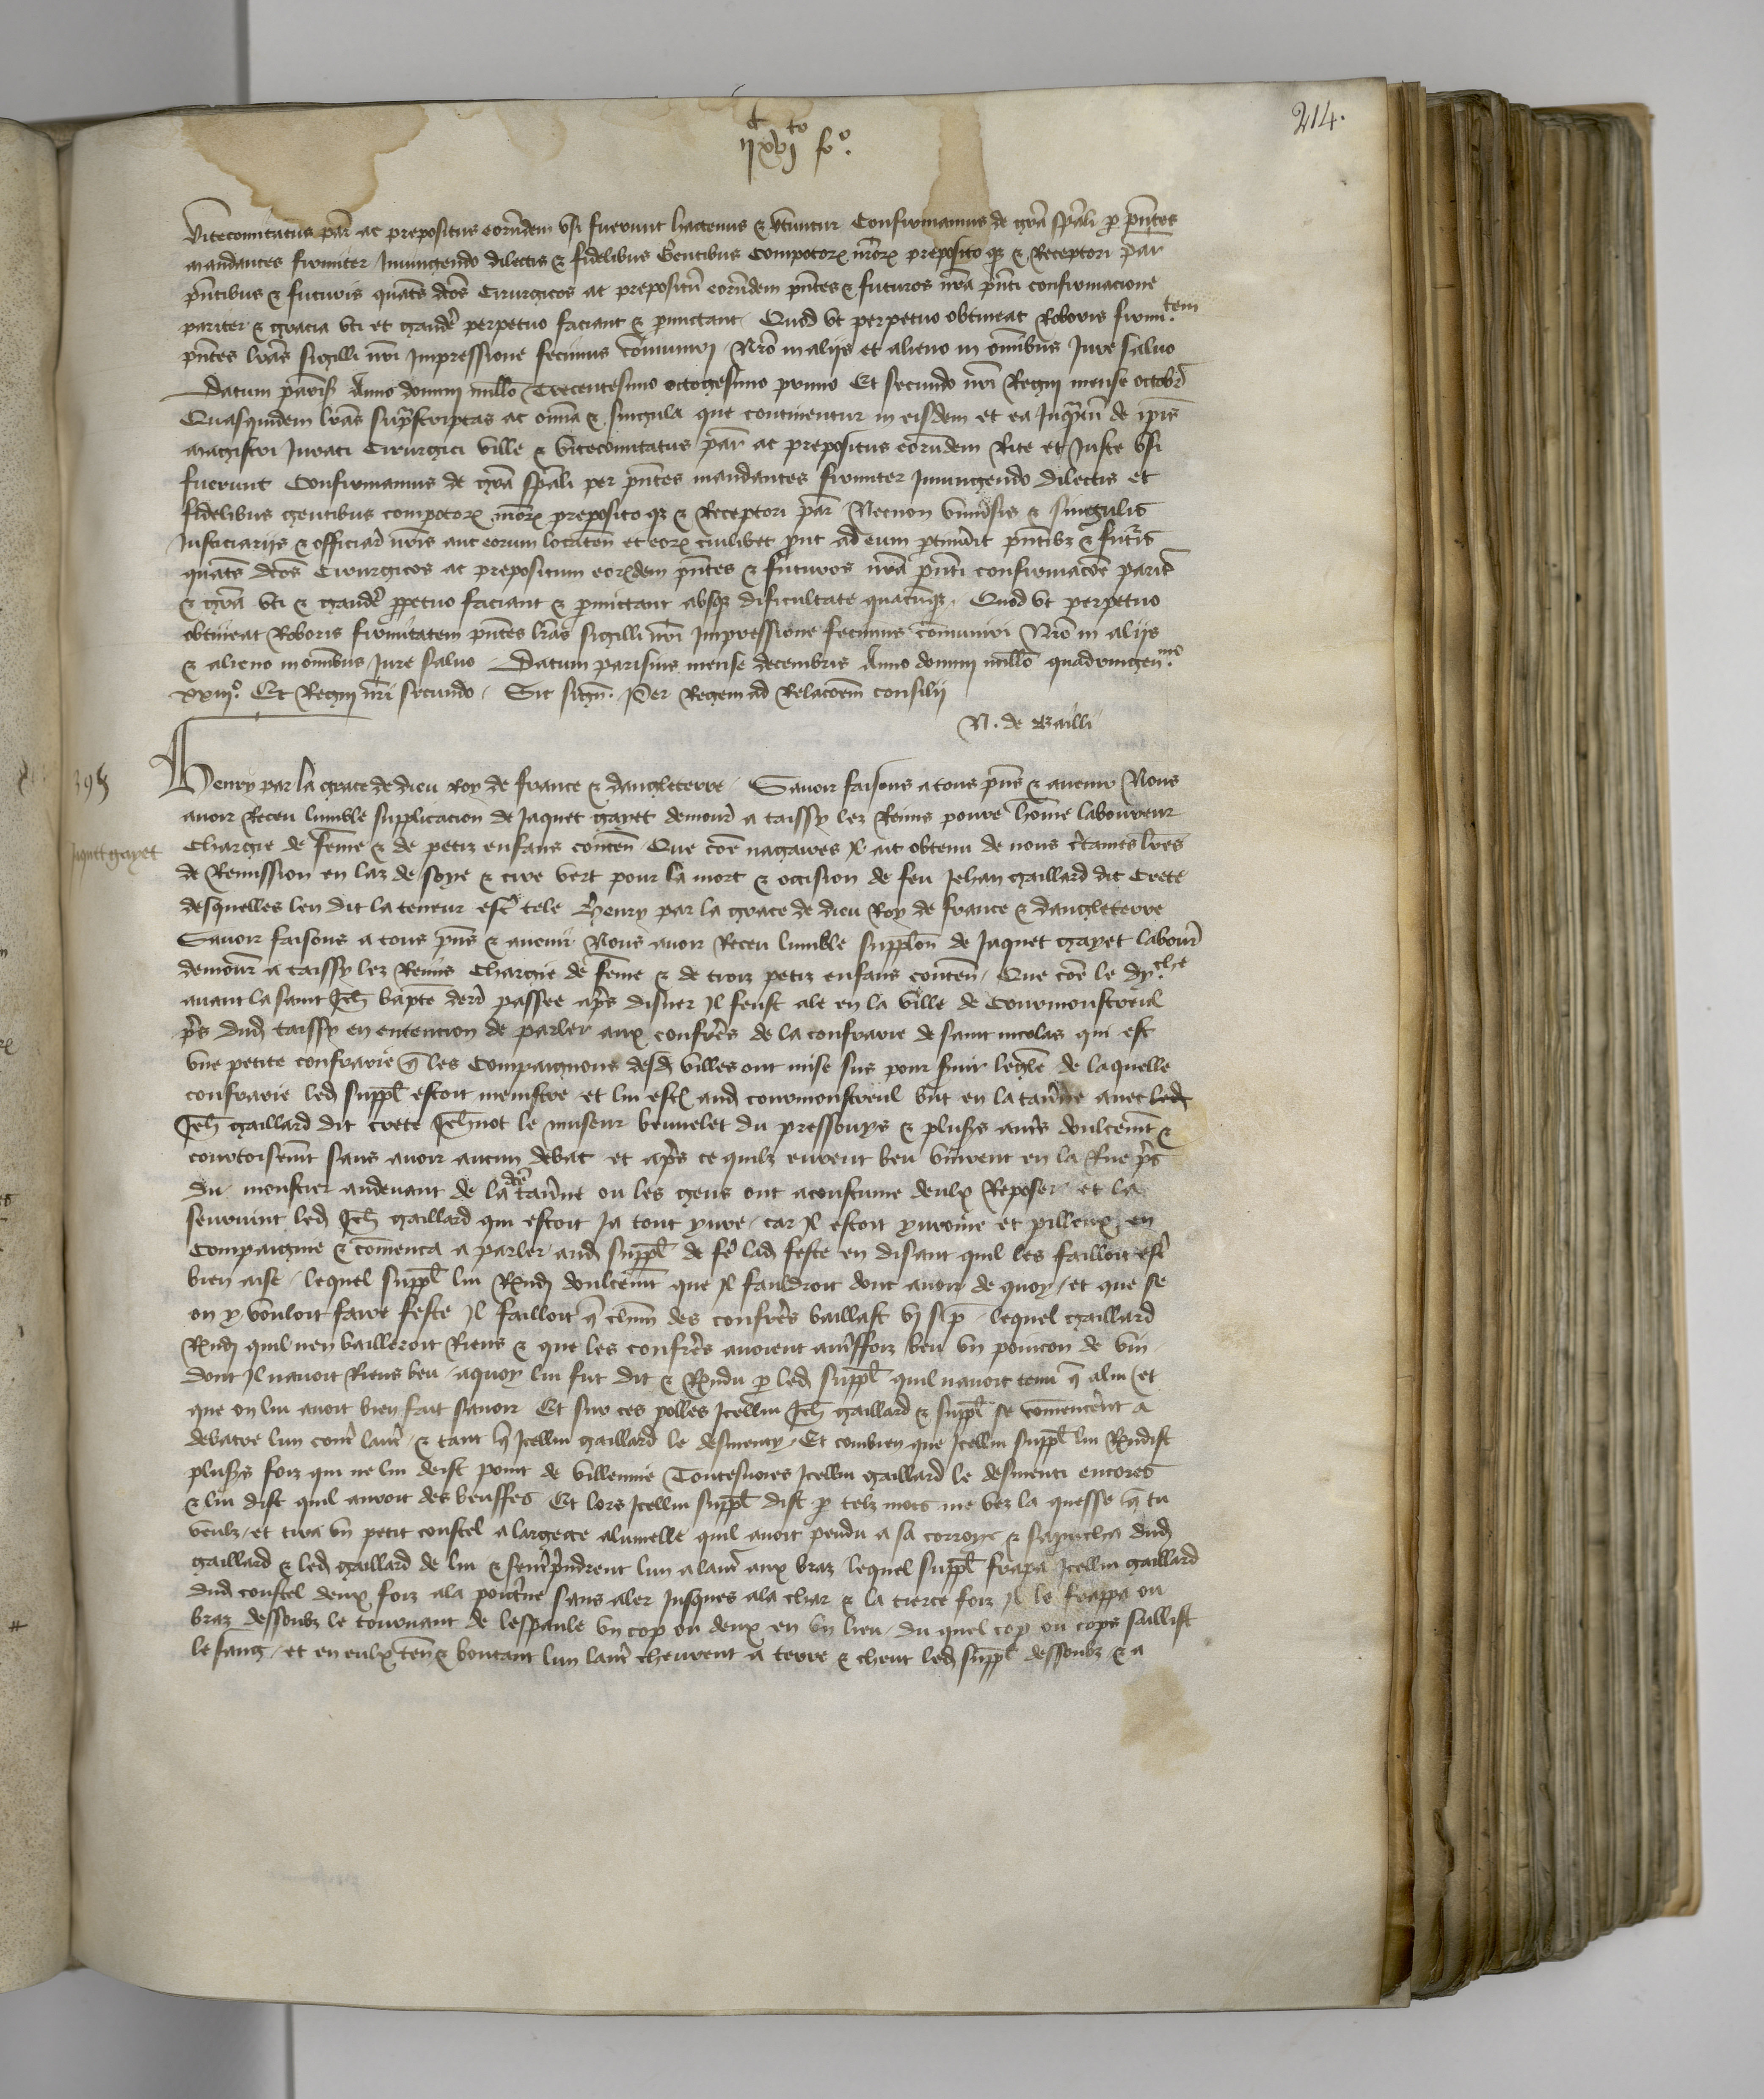 214.
ijc xvjto fo.
Vicecomitatus par ac prepositus eorumdem usi fuerunt hactenus & utuntur Confirmamus de gra spali p pntes
mandantes firmiter Iniungendo dilectis & fidelibus Gentibus Compotor nror preposito qz & Receptori par
pntibus & futuris quats dcos Cirurgicos ac prepositu eorumdem pntes & futuros nra pnti confirmacione
pariter & gracia uti et gaudere perpetuo faciant & permittant Quod ut perpetuo obtineat Roboris firmitatem
pntes lras sigilli nri Impressione fecimus comuniri Nro in alijs et alieno in omibus Iure saluo
Datum paris Anno domini millo Trecentesimo octogesimo primo Et secundo nri Regni mense octobr
Quasquidem lras suprascriptas ac omia & singula que continentur in eisdem et ea Inquantu de ipis
magistri Iurati Cirurgici ville & vicecomitatus par ac prepositus eorumdem Rite et Iuste usi
fuerunt Confirmamus de gra spali per pntes mandantes firmiter Iniungendo dilectis et
fidelibus gentibus compotor nror preposito qz & Receptori par Necnon uniuersis & singulis
Iusticiarijs & officiar nris aut eorum locaten et eor cuilibet prout ad eum ptinuerit pntibz & futuris
quats dcos Cirurgicos ac prepositum eorumdem pntes & futuros nra pnti confirmacoe parit
& gra uti & gaudere ppetuo faciant & pmittant absqz dificultate quacunqz Quod ut perpetuo
obtineat Roboris firmitatem pntes lras sigilli nri Impressione fecimus comuniri Nro in alijs
& alieno in omibus Iure saluo Datum parisius mense decembris Anno domini millo quadringenmo
xxiijo Et Regni nri secundo Sic sign. Per Regem ad Relacoem consilij
N. de Bailli
Henry par la grace de dieu Roy de france & dangleterre Sauoir faisons a tous pns & auenir Nous
auoir Receu lumble supplicacion de Jaquet gayet demour a taissy lez Reims poure home laboureur
Jaquet gayet
Chargie de feme & de petiz enfans conten Que coe nagaires Il ait obtenu de nous certaines lres
de Remission en laz de soye & cire vert pour la mort & occision de feu Jehan gaillard dit Crete
desquelles len dit la teneur estre tele Henry par la grace de dieu Roy de france & dangleterre
Sauoir faisons a tous pns & auenir Nous auoir Receu lumble supplon de Jaquet gayet labour
demour a taissy lez Reims Chargie de feme & de troiz petiz enfans conten Que coe le dymche
auant la saint Jeh bapte derr passee apres disner Il feust ale en la ville de Courmonstreul
pres dud taissy en entencion de parler aux confreres de la confrarie de saint nicolas qui est
une petite confrarie q les Compaignons desd villes ont mise sus pour seruir leglise de laquelle
confrarie led suppl estoit menistre et lui est aud courmonstreul but en la tauerne auec led
Jeh gaillard dit crete Jehnot le museur benuelet du pressouys & plusrs autres doulcemt &
courtoisemt sans auoir aucun debat et apres ce quilz eurent beu vindrent en la Rue pres
du monstier audeuant de la dce tauerne ou les gens ont acoustume deulx Reposer et la
seuruint led Jeh gaillard qui estoit Ja tout yure car Il estoit yuroine et pilleux en
Compaignie & comenca a parler aud suppl de fe lad feste en disant quil les failloit estre
bien aise lequel suppl lui Rndi doulcemt que Il fauldroit dont auoir de quoy et que se
on y vouloit faire feste Il failloit q chun des confreres baillast vj s p lequel gaillard
Rndi quil nen bailleroit Riens & que les confreres auoient autreffoiz beu un poincon de vin
dont Il nauoit Riens beu aquoy lui fut dit & Rndu p led suppl quil nauoit tenu q alui et
que on lui auoit bien fait sauoir Et sur ces polles Icellui Jeh gaillard & suppl se comencerent a
debatre lun contre lautre & tant q Icellui gaillard le desmenty Et combien que Icellui suppl lui Rndist
plusrs foiz qui ne lui deist point de villennie Toutesuoies Icellui gaillard le desmenti encores
& lui dist quil auroit des beuffes Et lors Icellui suppl dist p telz mots me vez la quesse q tu
veulz et tira un petit coustel a largece alumelle quil auoit pendu a sa corroye & sapprocha dud
gaillard & led gaillard de lui & sentreprindrent lun a lautre aux braz lequel suppl frapa Icellui gaillard
dud coustel deux foiz ala poictrine sans aler Jusques ala char & la tierce foiz Il le frappa ou
braz dessoubz le tournant de lespaule un cop ou deux en un lieu du quel cop ou cops saillist
le sang et en eulx ten & boutant lun lautre cheurent a terre & cheut led suppl dessoubz & a